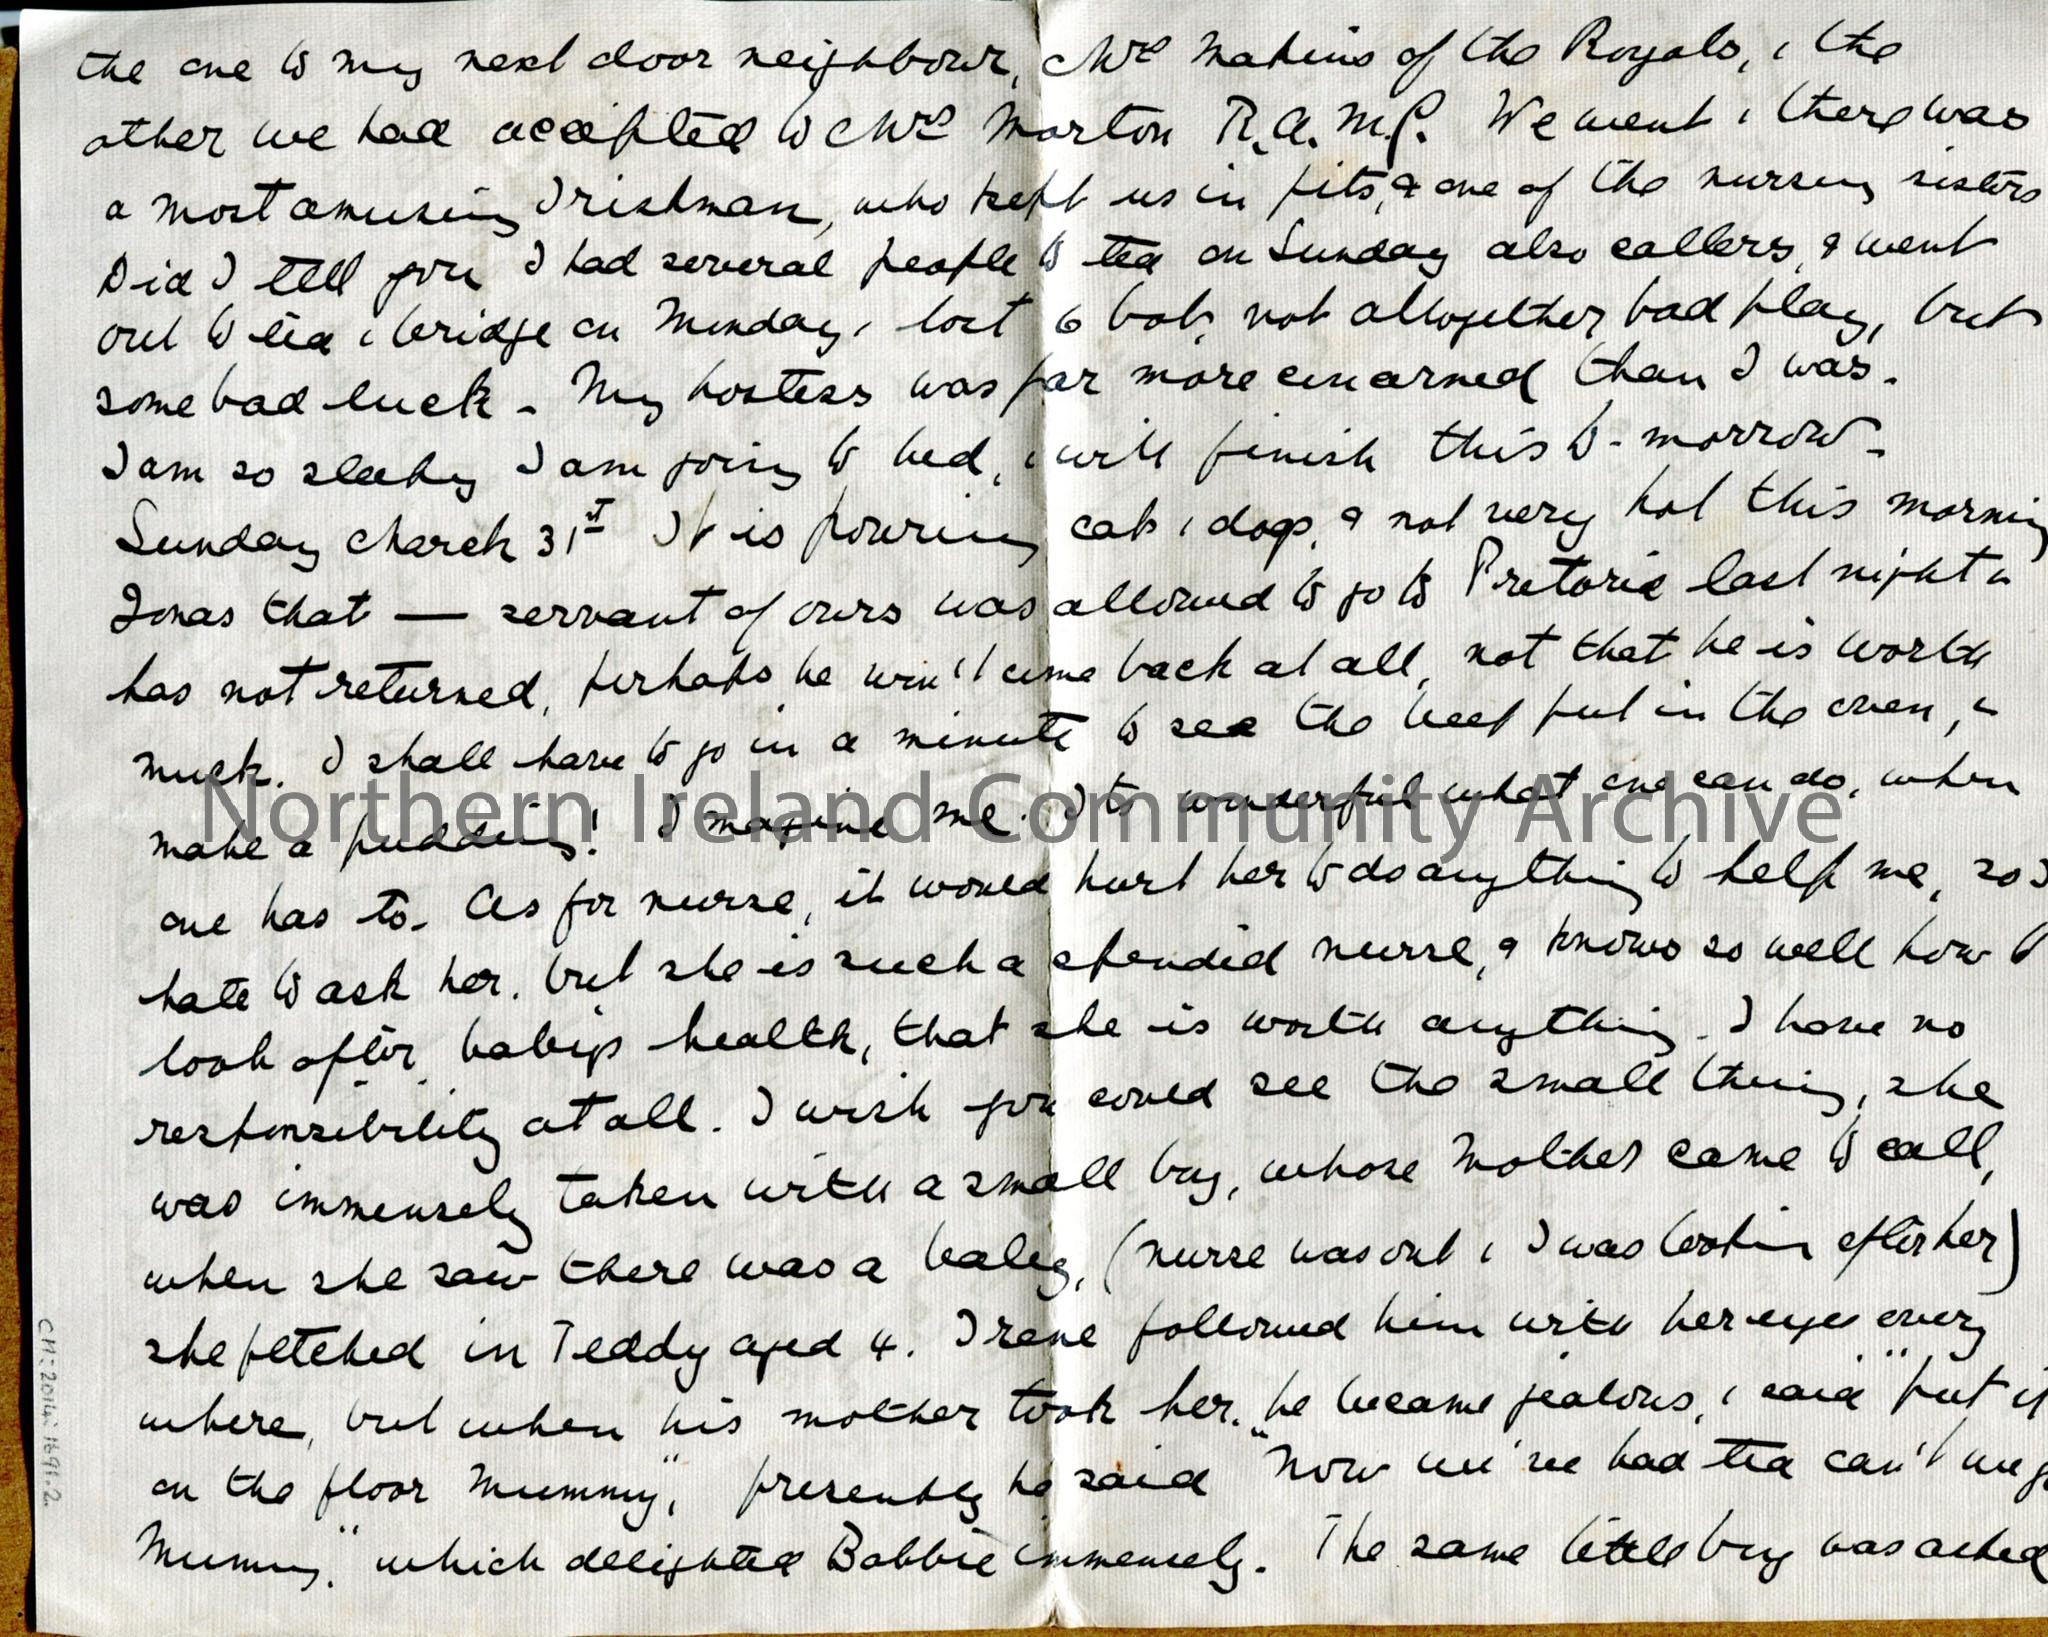 the one to my next door neighbour, Mrs Makins of the Royals, & the
other we had accepted to Mrs Morton R.A.M.C. We went & there was
a most amusing Irishman, who kept us in fits, & one of the nursing sisters
Did I tell you I had several people to tea on Sunday also callers, & went
out to tea & bridge on Monday, & lost 6 bob, not altogether bad play, but
some bad luck - My hostess was far more concerned than I was.
I am so sleepy I am going to bed, & will finish this to-morrow -
Sunday March 31st It is pouring cats & dogs, & not very hot this morning
Jonas that — servant of ours was allowed to go to Pretoria last night &
has not returned, perhaps he won't come back at all, not that he is worth
much. I shall have to go in a minute to see the beef put in the oven, &
make a pudding! Imagine me. Its wonderful what one can do, when
one has to. As for nurse, it would hurt her to do anything to help me, so I
hate to ask her, but she is such a splendid nurse, & knows so well how to
look after baby's health, that she is worth anything. I have no
responsibility at all. I wish you could see the small thing, she
was immensely taken with a small boy, whose mother came to call,
when she saw there was a baby, (nurse was out & I was looking after her)
she fetched in Teddy aged 4. Irene followed him with her eyes every
where, but when his mother took her, he became jealous, & said "put it
on the floor Mummy," presently he said "Now we've had tea can't we go
Mummy." which delighted Bobbie immensely. The same little boy was asked
Northern Ireland Community Archive
CM:2014:1691.2